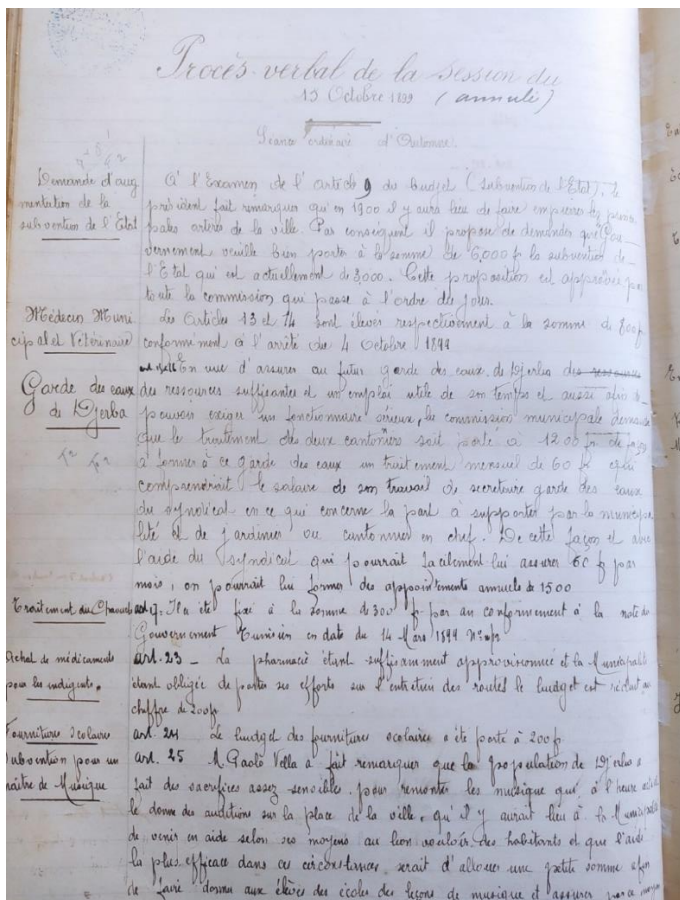 Procès-verbal de la session du
13 Octobre 1899 (annulé)
Séance ordinaire d'Automne.
Demande d'aug
mentation de la
subvention de l'Etat
A l'Examen de l'article 9 du budget (subvention de l'Etat). le
président fait remarquer qu'en 1900 il y aura lieu de faire empierrer les princi
pales artères de la ville. Par conséquent il propose de demander que le Gou-
vernement veuille bien porter à la somme de 6,000 f la subvention de
l'Etat qui est actuellement de 3,000. Cette proposition est approuvée par
toute la commission qui passe à l'ordre du jour.
Médecin Muni
cipal et Vétérinaire
Les Articles 13 et 14 sont élevés respectivement à la somme de 800 f
conformément à l'arrêté du 4 Octobre 1899
Garde des eaux
de Djerba
En vue d'assurer au futur garde des eaux de Djerba des ressources
des ressources suffisantes et un emploi utile de son temps et aussi afin de
pouvoir exiger un fonctionnaire sérieux, la commission municipale demande
que le traitement des deux cantonniers soit porté à 1200 f de façon
à donner à ce garde des eaux un traitement mensuel de 60 f qui
comprendrait le salaire de son travail de secrétaire garde des eaux
du syndicat en ce qui concerne la part à supporter par la municipa
lité et de jardinier ou cantonnier en chef. De cette façon et avec
l'aide du syndicat qui pourrait facilement lui assurer 60 f par
mois, on pourrait lui former des appointements annuels de 1500
Traitement du
Il a été fixé à la somme de 300 f par an conformément à la note du
Gouvernement Tunisien en date du 14 Mars 1899
Achat de médicaments
pour les indigents.
art. 23 - La pharmacie étant suffisamment approvisionnée et la Municipalité
étant obligée de porter ses efforts sur l'entretien des routes le budget est réduit au
chiffre de 200 f
Fournitures scolaires
art. 24 Le budget des fournitures scolaires a été porté à 200 f
Subvention pour un
maître de Musique
art. 25 M. Gaolo Vella a fait remarquer que la population de Djerba a
fait des sacrifices assez sensibles pour remonter les musique que, à l'heure
le donne des auditions sur la place de la ville, qu'il y aurait lieu à la Municipalité
de venir en aide selon ses moyens au bon vouloir des habitants et que l'aide
la plus efficace dans ces circonstances serait d'allouer une petite somme afin
de faire donner aux élèves des écoles des leçons de musique et assurer par ce moyen